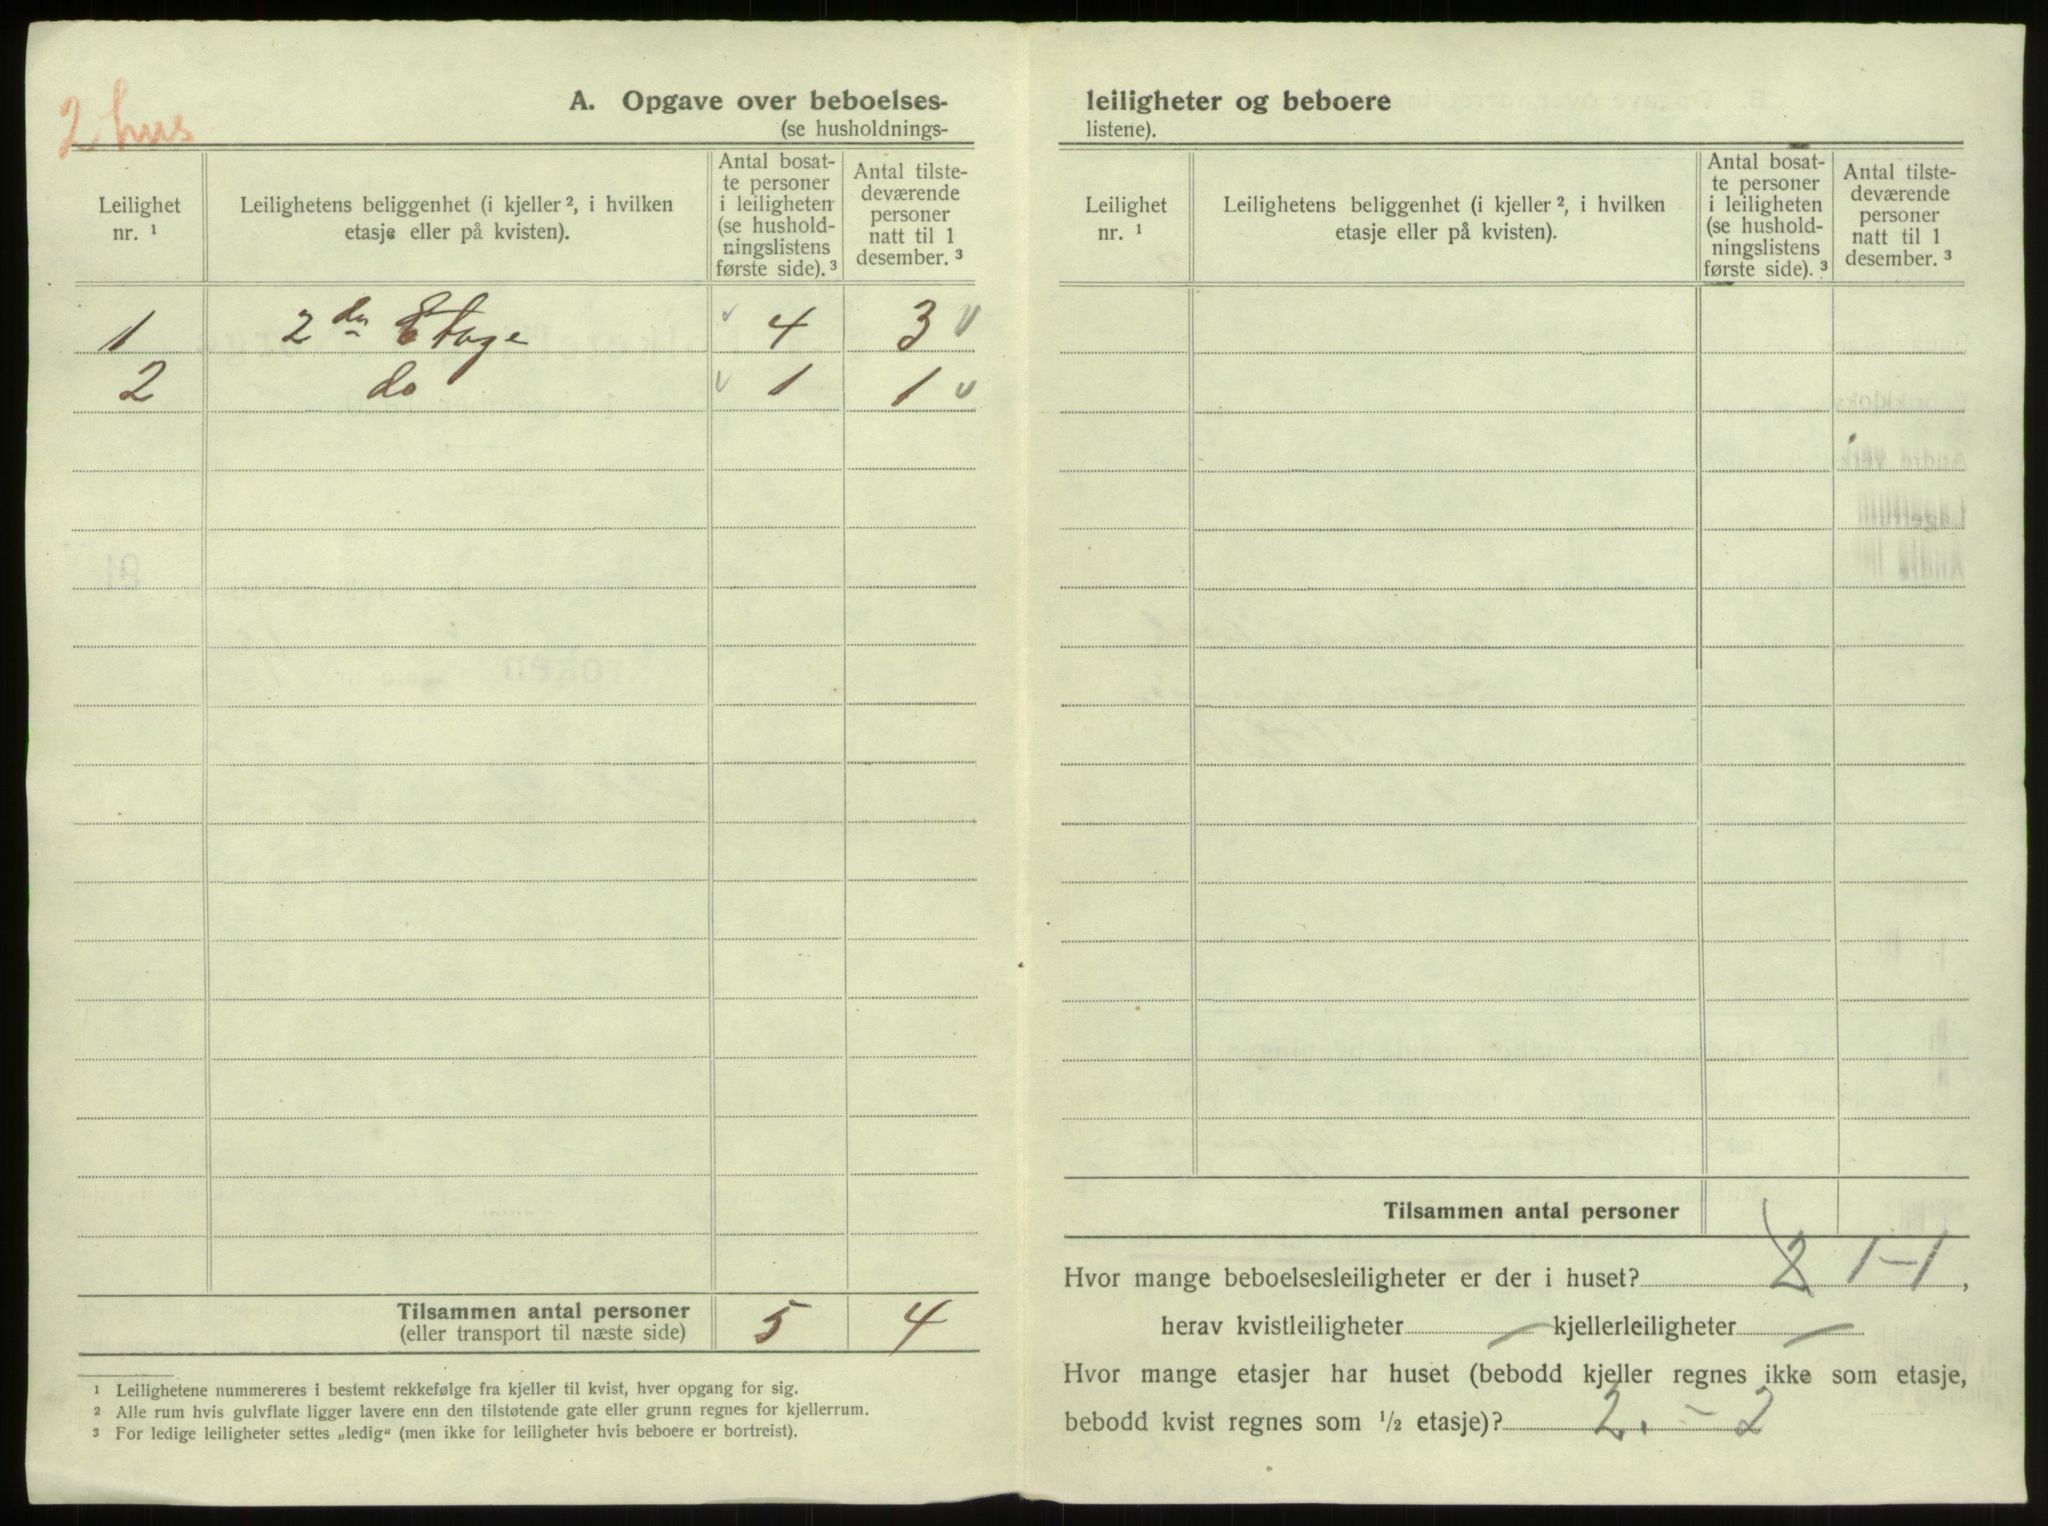 2 hus
A. Opgave over beboelses-
(se husholdnings-
Leilighet nr. ¹
Leilighetens beliggenhet (i kjeller ², i hvilken etasje eller på kvisten).
Antal bosat-te personer i leiligheten (se hushold-ningslistens første side). ³
Antal tilste-deværende personer natt til 1 desember. ³
1 2den Etage 4 3
2 do 1 1
Tilsammen antal personer 5 4
(eller transport til næste side)
¹ Leilighetene nummereres i bestemt rekkefølge fra kjeller til kvist, hver opgang for sig.
² Alle rum hvis gulvflate ligger lavere enn den tilstøtende gate eller grunn regnes for kjellerrum.
³ For ledige leiligheter settes „ledig“ (men ikke for leiligheter hvis beboere er bortreist).
leiligheter og beboere
listene).
Leilighet nr. ¹
Leilighetens beliggenhet (i kjeller ², i hvilken etasje eller på kvisten).
Antal bosat-te personer i leiligheten (se hushold-ningslistens første side). ³
Antal tilste-deværende personer natt til 1 desember. ³
Tilsammen antal personer
Hvor mange beboelsesleiligheter er der i huset? 2 1-1,
herav kvistleiligheter — kjellerleiligheter —
Hvor mange etasjer har huset (bebodd kjeller regnes ikke som etasje,
bebodd kvist regnes som ½ etasje)? 2. - 2